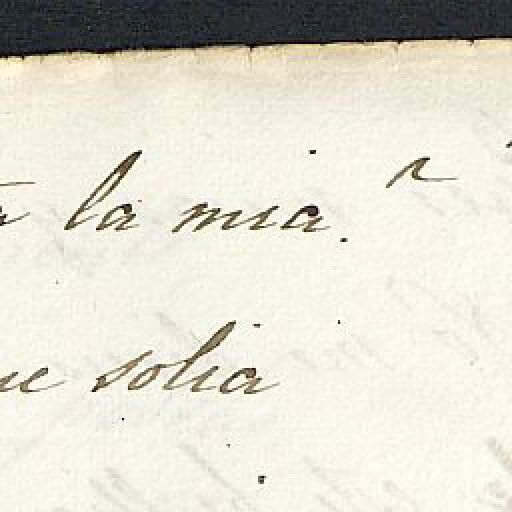 la mia.
solia